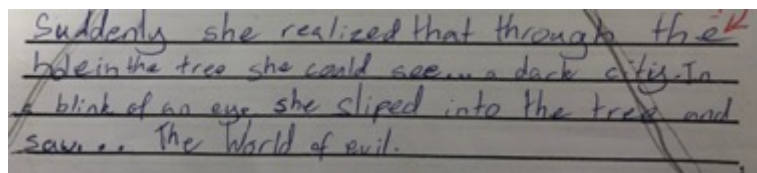 Suddenly she realized that through the
hole in the tree she could see... a dark citis. In
a blink of an eye she sliped into the tree and
saw... The World of evil.